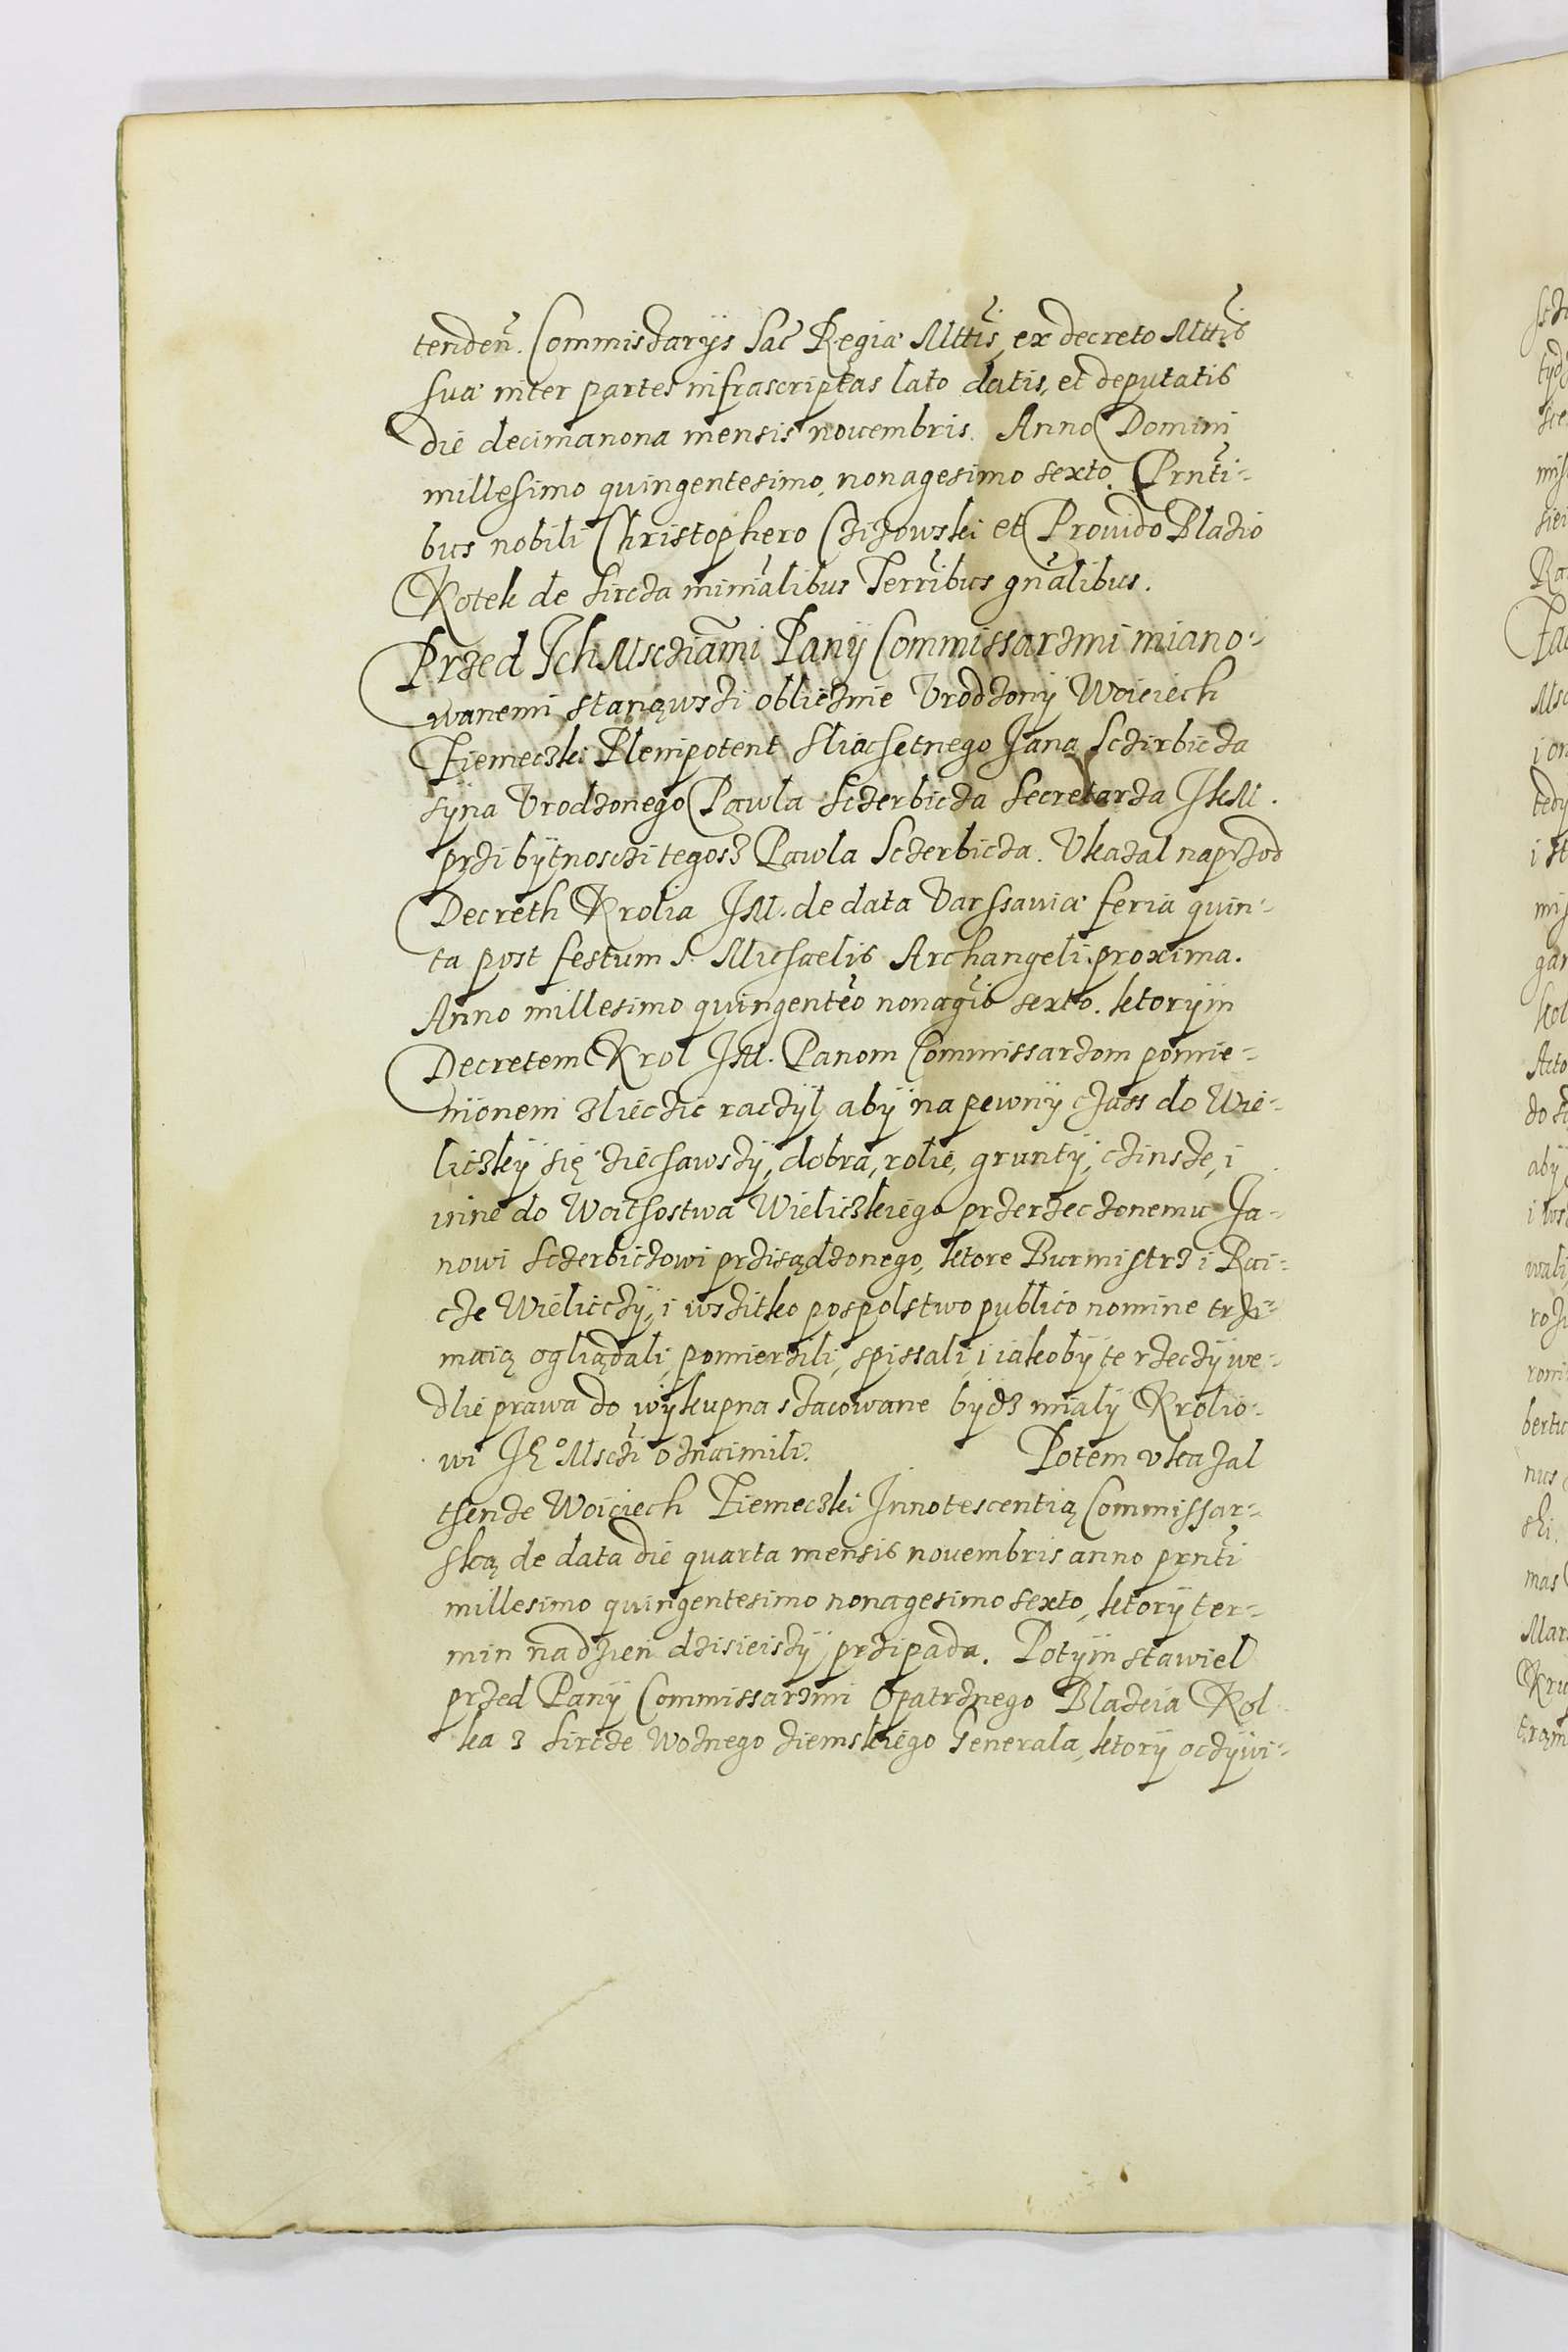 tendeñ. Commiszarijs Sac Regiæ Mttis, ex decreto Mttis
suæ inter partes infrascriptas lato datis, et deputatis
die decimanona mensis novembris. Anno Domini
millesimo quingentesimo, nonagesimo sexto. Prnti-
bus nobili Christophero Czizowski et Prouido Blazio
Kotek de Sircza minralibus Terribus gnalibus.
Przed Ich Mscziami Pany Commissarzmi miano-
wanemi stanąwszi obliecznie Vrodzony Woiciech
Ziemeczki Plenipotent sliachetnego Jana Sczirbicza
syna Vrodzonego Pawla Sczerbicza Secretarza JKM.
przi bytnosczi tegosz Pawla Sczerbicza. Vkazal naprzod
Decreth Krolia JM. de data Varssauiæ feria quin-
ta post festum S. Michaelis Archangeli proxima.
Anno millesimo quingenteo nonagio sexto. ktorym
Decretem Krol JM. Panom Commissarzom pomie-
nionem zliéczic raczyl, aby na pewny czass do Wie-
liczky się ziechawszy, dobra, rolie, grunty, czinsze, i
inne do Woithostwa Wieliczkiego przerzeczonemu Ja-
nowi Sczerbiczowi przisądzonego, ktore Burmistrz i Rai-
cze Wieliczcy, i wszitko pospolstwo publico nomine trzi-
maią oglądali, pomierzili, spissali, i iakoby te rzeczy we-
dlie prawa do wykupna szacowane bydz mialy Krolio-
wi JE° Msczi oznaimili. Potem vkazal
thenze Woiciech Ziemeczki Innotescentią Commissar-
ską de data die quarta mensis novembris anno prnti
millesimo quingentesimo nonagesimo sexto, ktory ter-
min na dzień dzisieiszy przipada. Potym stawiel
przed Pany Commissarzmi Opatrznego Blazeia Kot
ka z Sircze Woznego ziemskiego Generala, ktory oczywi-